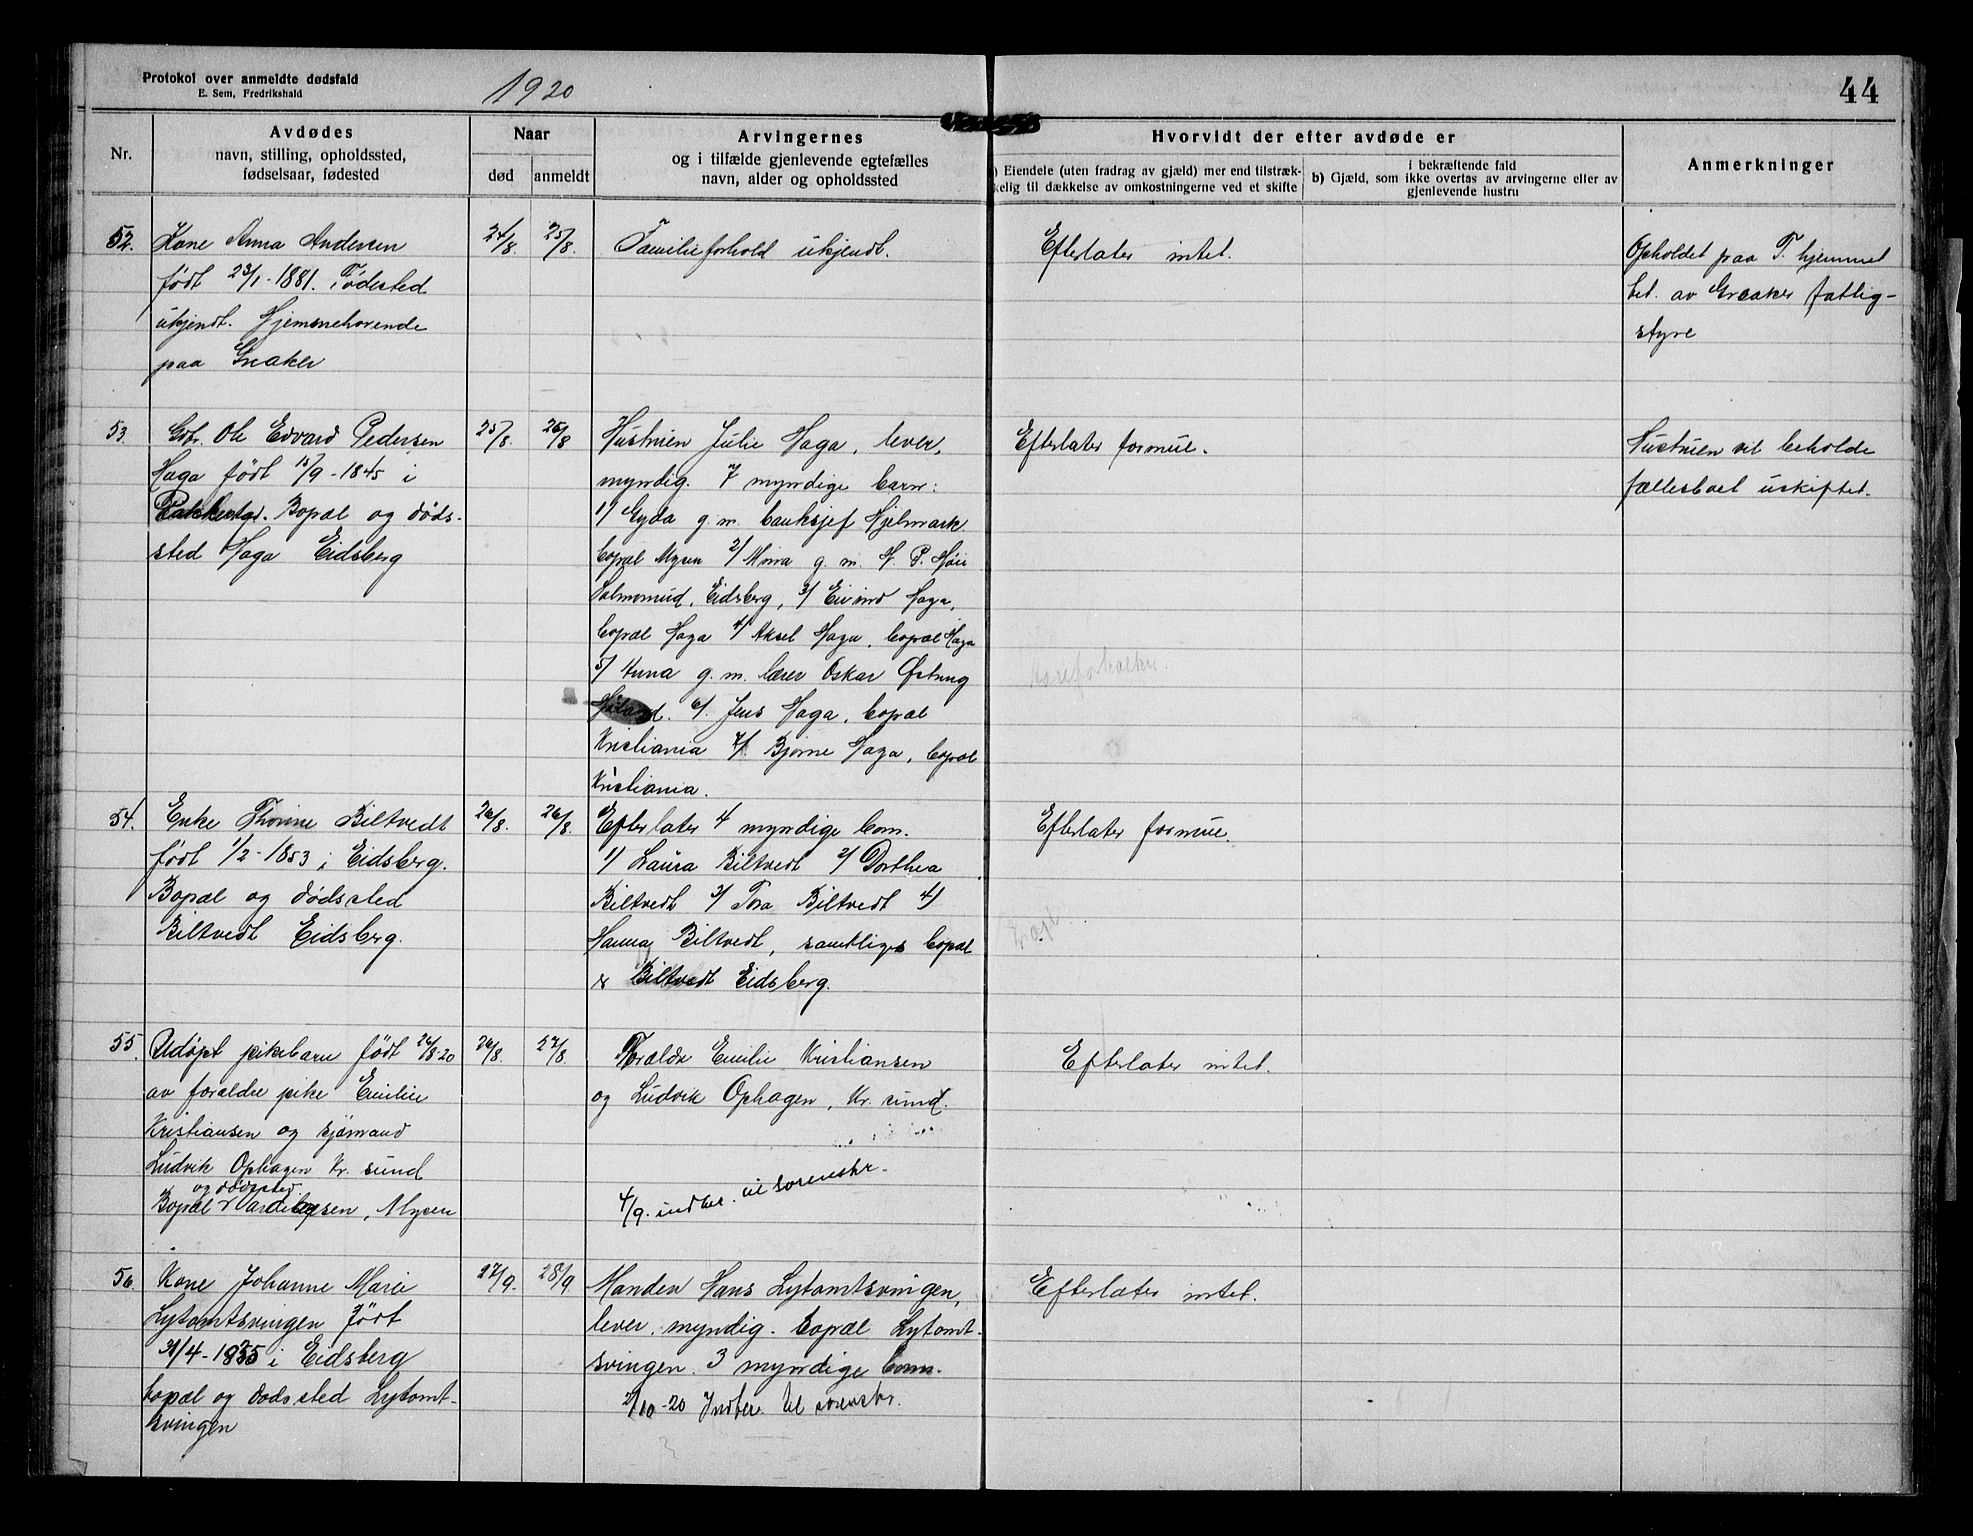 Protokol over anmeldte dødsfald
E. Sem, Fredrikshald
1920
44
Nr.
Avdødes
navn, stilling, opholdssted,
fødselsaar, fødested
Naar
død
anmeldt
Arvingernes
og i tilfælde gjenlevende egtefælles
navn, alder og opholdssted
Hvorvidt der efter avdøde er
) Eiendele (uten fradrag av gjæld) mer end tilstræk-
kelig til dækkelse av omkostningerne ved et skifte
i bekræftende fald
b) Gjæld, som ikke overtas av arvingerne eller av
gjenlevende hustru
Anmerkninger
52.
Kone Anna Andersen
født 23/1-1881. Fødested
ukjendt. Hjemmehørende
paa Greaker
24/8.
25/8.
Familieforhold ukjendt.
Efterlater intet.
Opholdet paa T. hjemmet
bet. av Greaker fattig-
styre
53.
Gbr. Ole Edvard Pedersen
Haga født 15/9-1845 i
Rakkestad. Bopæl og døds-
sted Haga Eidsberg
25/8.
26/8
Hustruen Julie Haga, lever,
myndig. 7 myndige barn:
1/ Gyda g. m. banksjef Hjelmark
bopæl Mysen 2/ Mina g. m. H. P. Høii
Eidsberg, 3/ Eivind Haga,
bopæl Haga 4/ Aksel Haga, bopæl Haga
5/ Anna g. m. lærer Oskar Østeng
Høland. 6/. Jens Haga, bopæl
Kristiania 7/. Bjarne Haga, bopæl
Kristiania.
Efterlater formue.
Hustruen vil beholde
fællesboet uskiftet.
54.
Enke Thorine Biltvedt
født 1/2-1853 i Eidsberg.
Bopæl og dødssted
Biltvedt Eidsberg.
26/8.
26/8.
Efterlater 4 myndige barn.
1/ Laura Biltvedt 2/ Dorthea
Biltvedt 3/ Tora Biltvedt 4/
Hanna Biltvedt, samtlige bopæl
Biltvedt Eidsberg.
Efterlater formue.
55.
Udøpt pikebarn født 26/8-20
av forældre pike Emilie
Kristiansen og sjømand
Ludvik Ophagen Kr. sund
og dødssted
Bopæl Mysen
26/8.
27/8.
Forældre Emilie Kristiansen
og Ludvik Ophagen, Kr. sund.
4/9. indber. til sorenskr.
Efterlater intet.
56.
Kone Johanne Marie
Lytomtsvingen født
/4-1855 i Eidsberg
bopæl og dødssted Lytomt-
svingen
27/9.
28/9.
Manden Hans Lytomtsvingen,
lever, myndig. bopæl Lytomt-
svingen. 3 myndige barn.
2/10-20 Indber. til sorenskr.
Efterlater intet.